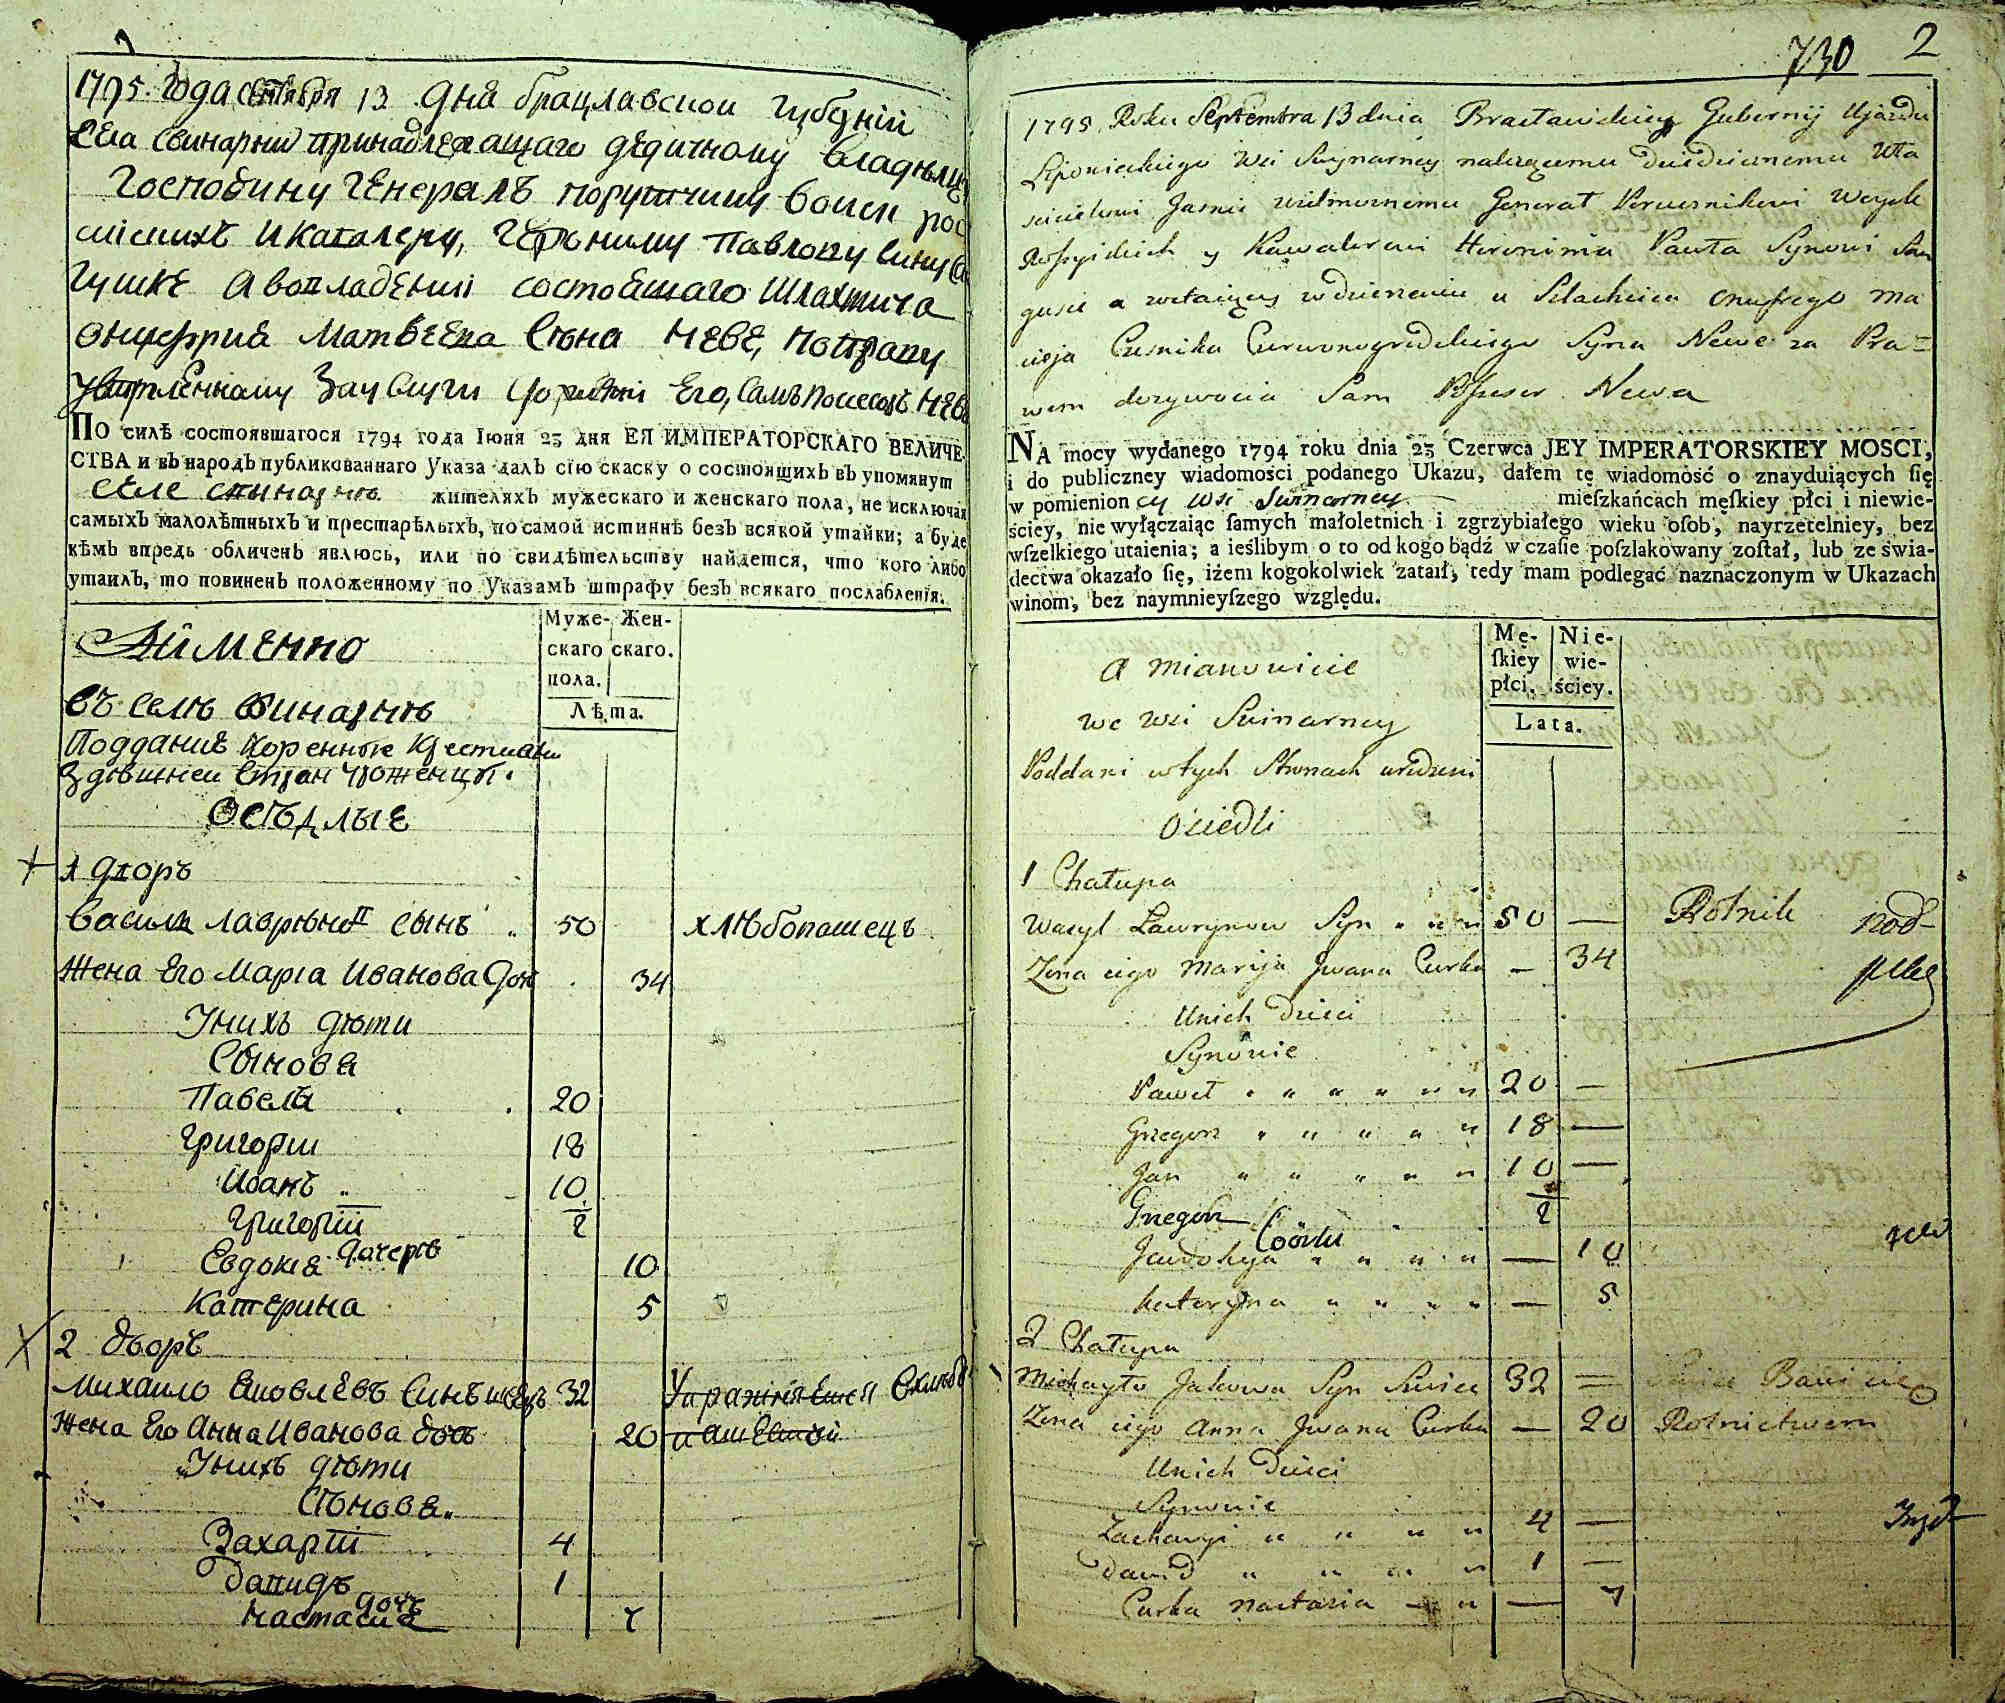 1795. Года сентября 13 дня брацлавской губернии
села Свинарки принадлежащаго дедичному владельцу
Господину Генералъ порутчику воиск рос
сиискихъ и кавалеру, павлову сину Са
гушке а во владении состоящаго Шляхтича
онуфрия Матвеева сына Неве, по праву
Его, самъ посесоръ Неве
По силѣ состоявшагося 1794 года Іюня 23 дня ЕЯ ИМПЕРАТОРСКАГО ВЕЛИЧЕ-
СТВА и въ народъ публикованнаго Указа далъ сію скаску о состоящихъ въ упомянут
селе свинарке жителяхъ мужескаго и женскаго пола, не исключая
самыхъ малолѣтныхъ и престарѣлыхъ, по самой истиннѣ безъ всякой утайки; а буде
кѣмъ впредь обличенъ явлюсь, или по свидѣтельству найдется, что кого либо
утаилъ, то повиненъ положенному по Указамъ штрафу безъ всякаго послабленія.
Муже- Жен-
скаго скаго.
пола.
Лѣта.
А именно
въ селѣ Свинаркѣ
Подданіе коренные крестиани
здѣшнеи стран уроженцы.
Осѣдлые
1 дворъ
Василъ лаврѣновъ сынъ 50 хлѣбопашецъ
Жена Его Маріа Иванова доч 34
У нихъ дѣти
Сыновя
Павелъ 20
Григории 18
Иванъ 10
Григории 2
Евдокия дочерѣ 10
Катерина 5
2 дворъ
Михаило Яковлевъ Синъ швецъ 32
Жена Его Анна Иванова доч 20
У нихъ дѣти
Сѣновя
Захарий 4
Давидъ 1
дочь
Настасия 7
730 2
1795, Roku Septembra 13 dnia Bracławskiey Gubernij Ujazdu
Lipowieckiego Wsi Swynarney należącemu Dziedzicznemu Wła
scicielowi Jasnie wielmoznemu Generał Porucznikowi Woysk
Rossyiskich y Kawalerowi Hieronimu Pawła Synowi San
gusce a zostaiący w dzierzeniu u Szlachcica Onufrego Ma
cieja Czesnika Czerwonogrodzkiego Syna Newe za Pra-
wem dozywocia Sam Possesor Newe
NA mocy wydanego 1794 roku dnia 23 Czerwca JEY IMPERATORSKIEY MOSCI,
i do publiczney wiadomości podanego Ukazu, dałem tę wiadomość o znayduiących się
w pomienion ey Wsi Swinarney mieſzkańcach męſkiey płci i niewie-
ściey, nie wyłączaiąc ſamych małoletnich i zgrzybiałego wieku oſob, nayrzetelniey, bez
wſzelkiego utaienia; a ieślibym o to od kogo bądź w czaſie poſzlakowany zoſtał, lub ze świa-
dectwa okazało ſię, iżem kogokolwiek zataił, tedy mam podlegać naznaczonym w Ukazach
winom, bez naymnieyſzego względu.
Mę- Nie-
ſkiey wie-
płci. ściey.
Lata.
A mianowicie
we wsi Swinarney
Poddani w tych Stronach urodzeni
Osiedli
1 Chałupa
Wasyl Ławrynow Syn 50 — Rolnik
Zona iego Maryja Jwana Curka — 34
U nich Dzieci
Synowie
Paweł 20 —
Grzegorz 18 —
Jan 10 —
Grzegorz 2
Córki
Jewdokyja — 10
Kateryna — 5
2 Chałupa
Michayło Jakowa Syn Szwiec 32 — Bawi się
Zona iego Anna Jwana Curka — 20 Rolnictwem
U nich Dzieci
Synowie
Zacharyi 4 —
Dawid 1 —
Curka Nastazia — 7